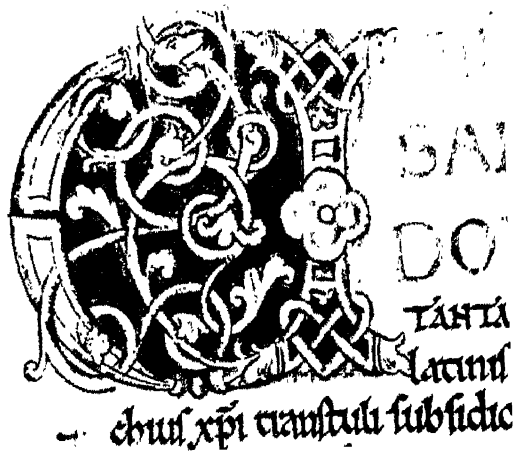 SA
DO
TANTA
latinis
chius xp̄i transtuli subsidio